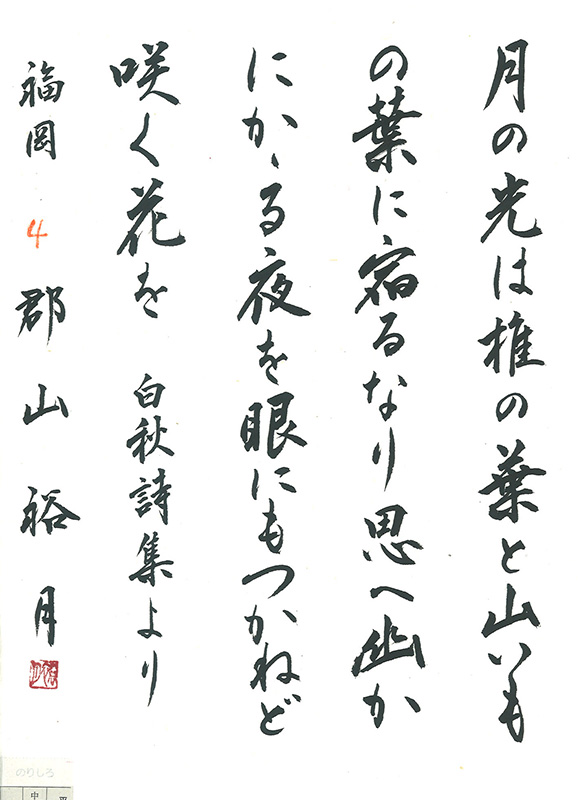 月の光は椎の葉と山いも
の葉に宿るなり思へ幽か
にかゝる夜を眼にもつかねど
咲く花を 白秋詩集より
福岡 4 郡山裕月
のりしろ
中